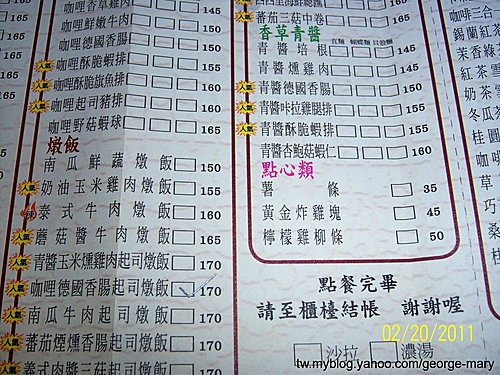 咖哩杏草雞肉
咖哩鮮嫩牛肉 165
咖哩德國香腸 150
人氣 咖哩酥脆蝦排 155
人氣 咖哩酥脆旗魚排 160
人氣 咖哩起司豬排 160
咖哩野菇蝦球 165
燉飯
南瓜鮮蔬燉飯 150
人氣 奶油玉米雞肉燉飯 155
辣 泰式牛肉燉飯 160
人氣 蘑菇醬牛肉燉飯 165
人氣 青醬玉米燻雞肉起司燉飯 170
人氣 咖哩德國香腸起司燉飯 170
南瓜牛肉起司燉飯 170
人氣 蕃茄煙燻香腸起司燉飯 170
165
蕃茄三菇中卷 165
香草青醬
直麵 蝴蝶麵 貝殼麵
青醬培根 145
青醬燻雞肉 145
人氣 青醬德國香腸 150
人氣 青醬咔拉雞腿排 155
人氣 青醬酥脆蝦排 155
青醬杏鮑菇蝦仁 160
點心類
薯條 35
黃金炸雞塊 45
檸檬雞柳條 50
點餐完畢
請至櫃檯結帳 謝謝喔
沙拉 濃湯
咖啡三合一
錫蘭紅茶
茉香綠
紅茶
奶茶
冬瓜
桂圓
草
巧
桑
桂
02/20/2011
tw.myblog.yahoo.com/george-mary